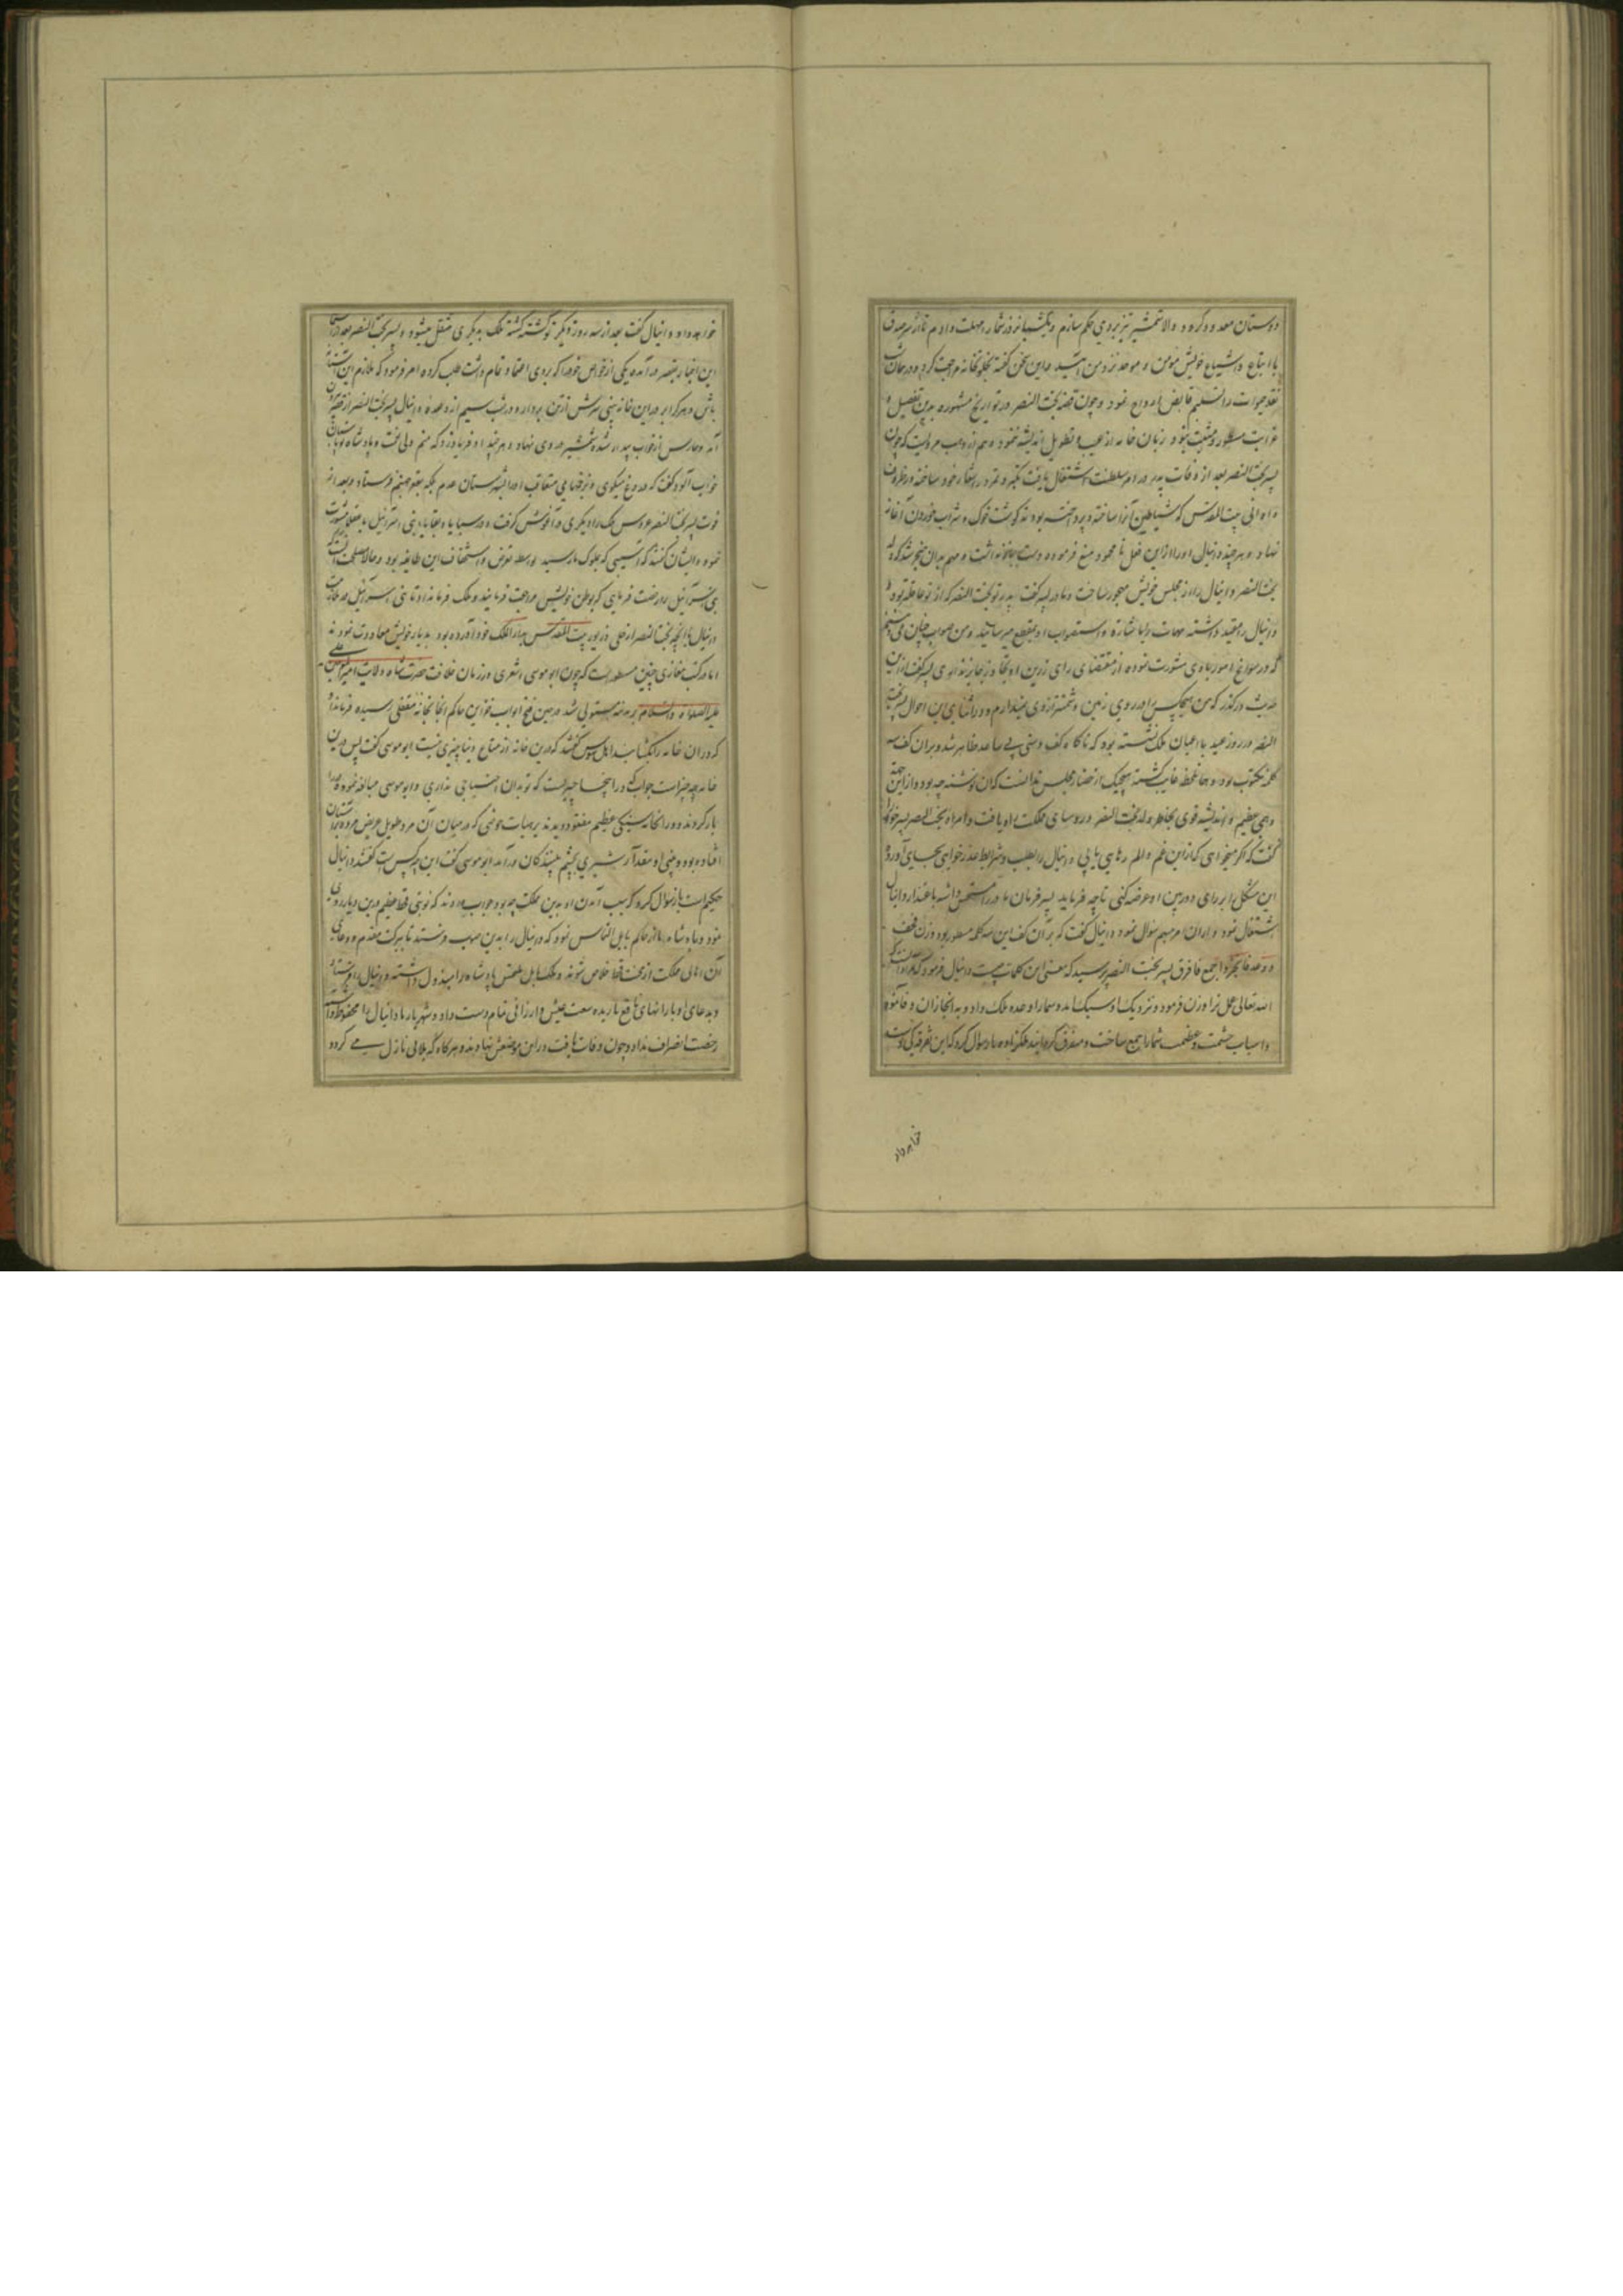 دوستان معدود کردد والا شمشیر تیز بروی حکم سازم و یکشبانروز شمارا مهلت دادم تا از سر صدق
با اتباع و اشیاع خویش مؤمن و موحد نزد من آئید و این سخن گفته بخلوتخانه مراجعت کرد و در همان شب
نقد حیوات را تسلیم قابض ارواح نمود و چون قصه بخت النصر در تواریخ مشهوره بدین تفصیل و
غرابت مسطور و مثبت بنود زبان خامه از عیب تطویل اندیشه ننمود و هم از وهب مرویست که چون
پسر بخت النصر بعد از وفات پدر در امر سلطنت اشتغال یافت تکبر و تمرد را شعار خود ساخته در ظروف
و اوانی بیت المقدس که شیاطین آنرا ساخته و پرداخته بودند گوشت خوک و شراب خوردن آغاز
نهاد و هر چند دانیال او را از این فعل نا محمود منع فرمود دست باز نداشت و مهم بدان منجر شد که ولد
بخت النصر دانیال را از مجلس خویش مهجور ساخت و مادر پسر گفت پدر تو بخت النصر که از تو عاقلتر بود
دانیال را مقید داشته مهمات را باشاره و استصواب او بمقطع میرسانید و من صواب چنان می بینم
که در سوانح امور با وی مشورت نموده از مقتضای رای زرین او تجاوز جایز نداری پسر گفت از این
حدیث درگذر که من هیچکس را در روی زمین دشمنتر از وی نمیدارم و در اثنای این احوال پسر بخت
النصر در روز عید با اعیان ملک نشسته بود که ناگاه کف دستی بی ساعد ظاهر شد و بران کف سه
کلمه مکتوب بود و بهمان لحظه غایب گشته هیچیک از حضار مجلس ندانست که آن نوشته چه بود و از این جهة
وهمی عظیم و اندیشه قوی بخاطر ولد بخت النصر و روسای مملکت راه یافت و مادر بخت النصر پسر خود را
گفت که اگر میخواهی که از این غم و الم رهایی یابی دانیال را بطلب و شرایط عذر خواهی بجای آورد و
این مشکل را بر رای دوربین او عرضه کنی تا چه فرماید پسر فرمان مادر را مستحسن داشته باعتذار دانیال
اشتغال نمود و از آن امر مبهم سؤال نمود دانیال گفت که بر آن کف این سه کلمه مسطور بود وزن فخف
و وعد فانجز و جمع فافرق پسر بخت النصر پرسید که معنی این کلمات چیست دانیال فرمود که مراد آنست که
الله تعالی عمل ترا وزن فرمود و نزدیک او سبک آمد و شما را وعده ملک داد و به انجاز آن وفا نمود
و اسباب حشمت و عظمت شما را جمع ساخت و متفرق گردانید ملکزاده باز سؤال کرد که این تفرقه کی دست
خواهد داد
خواهد داد دانیال گفت بعد از سه روز دیگر تو کشته گشته ملک بدیگری منتقل میشود و پسر بخت النصر بعد از استماع
این اخبار بقصر در آمده یکی از خواص خود را که بر وی اعتماد تمام داشت طلب کرده امر فرمود که ملازم این آستانه
باش و هر کرا بر در این خانه بینی سرش از تن بردار و در شب سیم از وعده دانیال پسر بخت النصر از قصر برون
آمد و حارس از خواب بیدار شده شمشیر در وی نهاد و هر چند او فریاد زد که منم ولی نعمت و پادشاه تو پاسبان
خواب آلود گفت که دروغ میگوی و بزخمهای متعاقب او را بشهرستان عدم بلکه بقعر جهنم فرستاد و بعد از
فوت پسر بخت النصر عروس ملک را دیگری در آغوش گرفت و در سبایا و بقایای بنی اسرائیل با عقلا مشورت
نموده ایشان گفتند که آسیبی که بملوک ما رسید بواسطه تعرض و استخفاف این طایفه بود و حالا مصلحت آنست که
بنی اسرائیل را رخصت فرمایی که بوطن خویش مراجعت فرمایند و ملک فرمان داد تا بنی اسرائیل در ملازمت
دانیال با آنچه بخت النصر از حلی و زیور بیت المقدس بدار الملک خود آورده بود بدیار خویش معاودت نمودند
اما در کتب مغازی چنین مسطور است که چون ابو موسی اشعری در زمان خلافت حضرت شاه ولایت امیرالمؤمنین علی
علیه الصلوة والسلام بر مدینه مستولی شد در حین فتح ابواب خزاین حاکم آنجا بخانه مقفلی رسیده فرمان داد
که در آن خانه را بگشایند اهل سوس گفتند که درین خانه از متاع دنیا چیزی نیست ابو موسی گفت پس درین
خانه چه چیز است جواب گفتند در اینجا چیزیست که تو بدان احتیاجی نداری و ابو موسی مبالغه نموده در را
باز کردند و در آنخانه سنگی عظیم مفقور دیدند بر هیات حوضی که در میان آن مرد طویل عریض مرده بر پشت
افتاده بود و بینی او بمقدار شبری بچشم بینندگان در آمد ابو موسی گفت این چه کس است گفتند دانیال
حکیم است باز سؤال کرد که سبب آمدن او بدین مملکت چه بود جواب دادند که نوبتی قحط عظیم درین دیار روی
نمود و پادشاه ما از حاکم بابل التماس نمود که دانیال را بدین صوب فرستد تا ببرکت مقدم و دعای
آن اهالی مملکت از محنت قحط خلاص شوند و ملک بابل ملتمس پادشاه را مبذول داشته دانیال را فرستاد
و بدعای او بارانهای نافع باریده سعت عیش و ارزانی تمام دست داد و شهریار ما دانیال را محفوظ داشته
رخصت انصراف نداد و چون وفات یافت در این موضعش نهادند و هرگاه که بلایی نازل می گردد